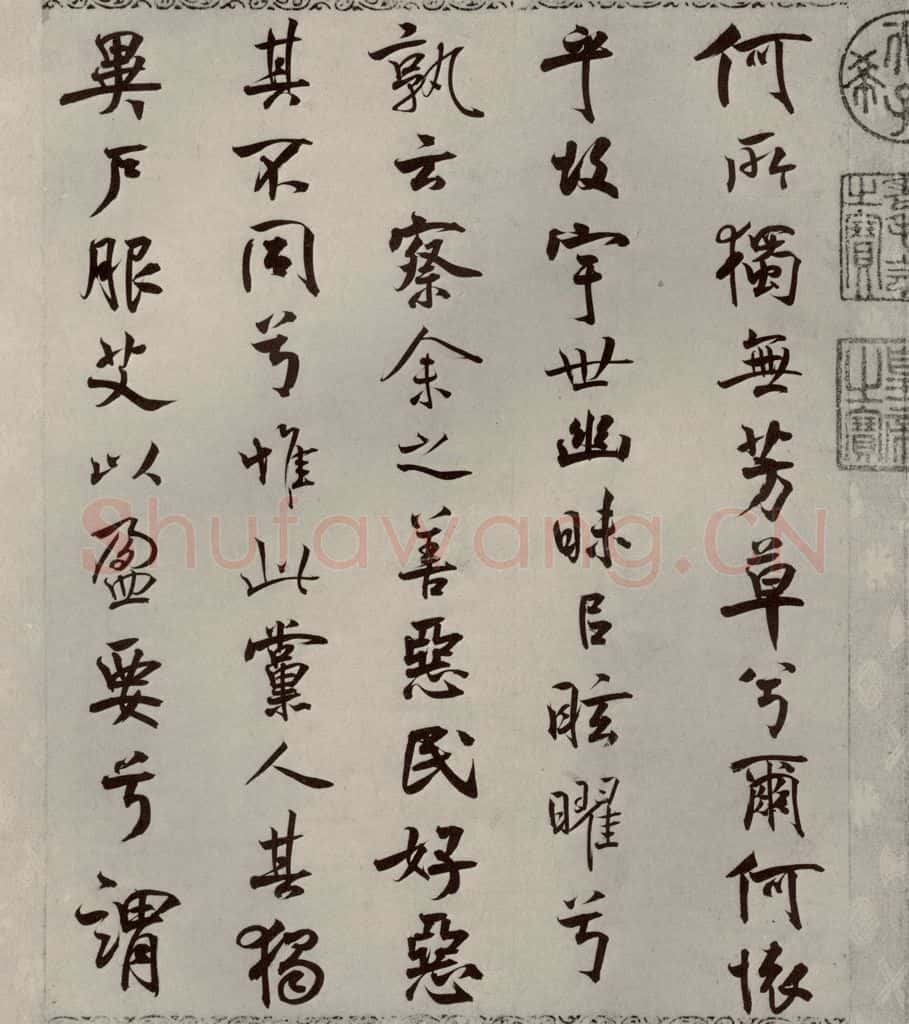 何所獨無芳草兮爾何懷
乎故宇世幽昧㠯眩曜兮
孰云察余之善惡民好惡
其不同兮惟此黨人其獨
異戶服艾以盈要兮謂
Shufawang.CN